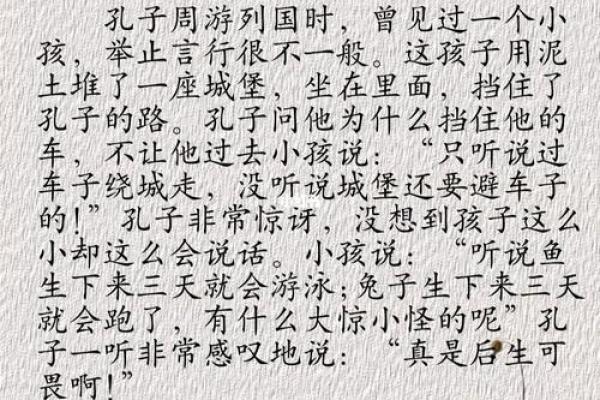 孔子周游列国时，曾见过一个小
孩，举止言行很不一般。这孩子用泥
土堆了一座城堡，坐在里面，挡住了
孔子的路。孔子问他为什么挡住他的
车，不让他过去小孩说：“只听说过
车子绕城走，没听说城堡还要避车子
的！”孔子非常惊讶，没想到孩子这么
小却这么会说话。小孩说：“听说鱼
生下来三天就会游泳；兔子生下来三天
就会跑了，有什么大惊小怪的呢”孔
子一听非常感叹地说：“真是后生可
畏啊！”